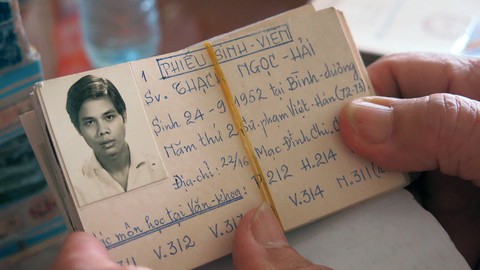 1 PHIẾU SINH-VIÊN
Sv. THẠCH NGỌC-HẢI
Sinh 24-9-1952 tại Bình-dương
Năm thứ 2 Sư-phạm Việt-Hán (72-73)
Địa-chỉ: 22/16 Mạc-Đĩnh-Chi,
môn học tại Văn-khoa: 212 H.214
V.312 V.31 V.314 M.311